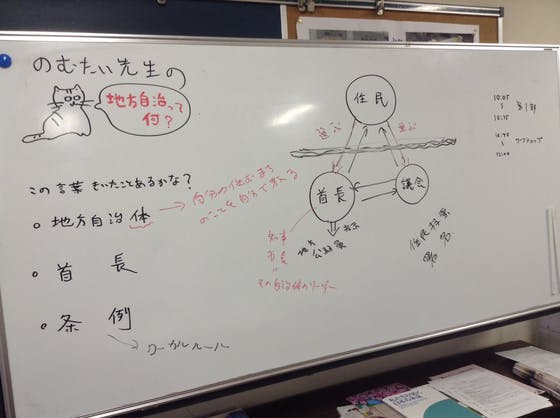 のむたい先生の
地方自治って
何?
この言葉きいたことあるかな?
地方自治体
自分の住むまち
のことを自分で決める
首長
条例
ローカルルール
住民
選ぶ
選ぶ
首長
議会
指示
地方
公務員
知事
市長
〃
その自治体のリーダー
住民投票
署名
10:05
~
第1部
~
ワークショップ
12:00